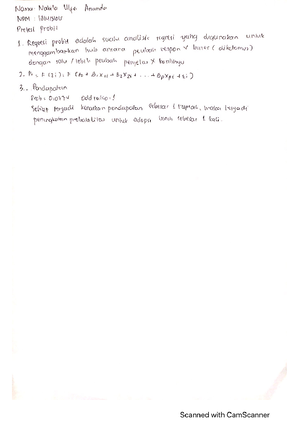 Nama : Nabila Ulya Ananda
NIM :
Pretest Probit
1. Regresi probit adalah suatu analisis regresi yang digunakan untuk
menggambarkan hub antara peubah respon Y biner (dikotomus)
dengan satu / lebih peubah penjelas X kontinyu
2. Pi = F (Zi) = F (β0 + β1X1i + β2X2i + ... + βpXpi + εi)
3. Pendapatan
odd ratio = 1
terjadi kenaikan pendapatan sebesar 1 rupiah, maka terjadi
peningkatan probabilitas untuk adopsi sebesar 1 kali.
Scanned with CamScanner